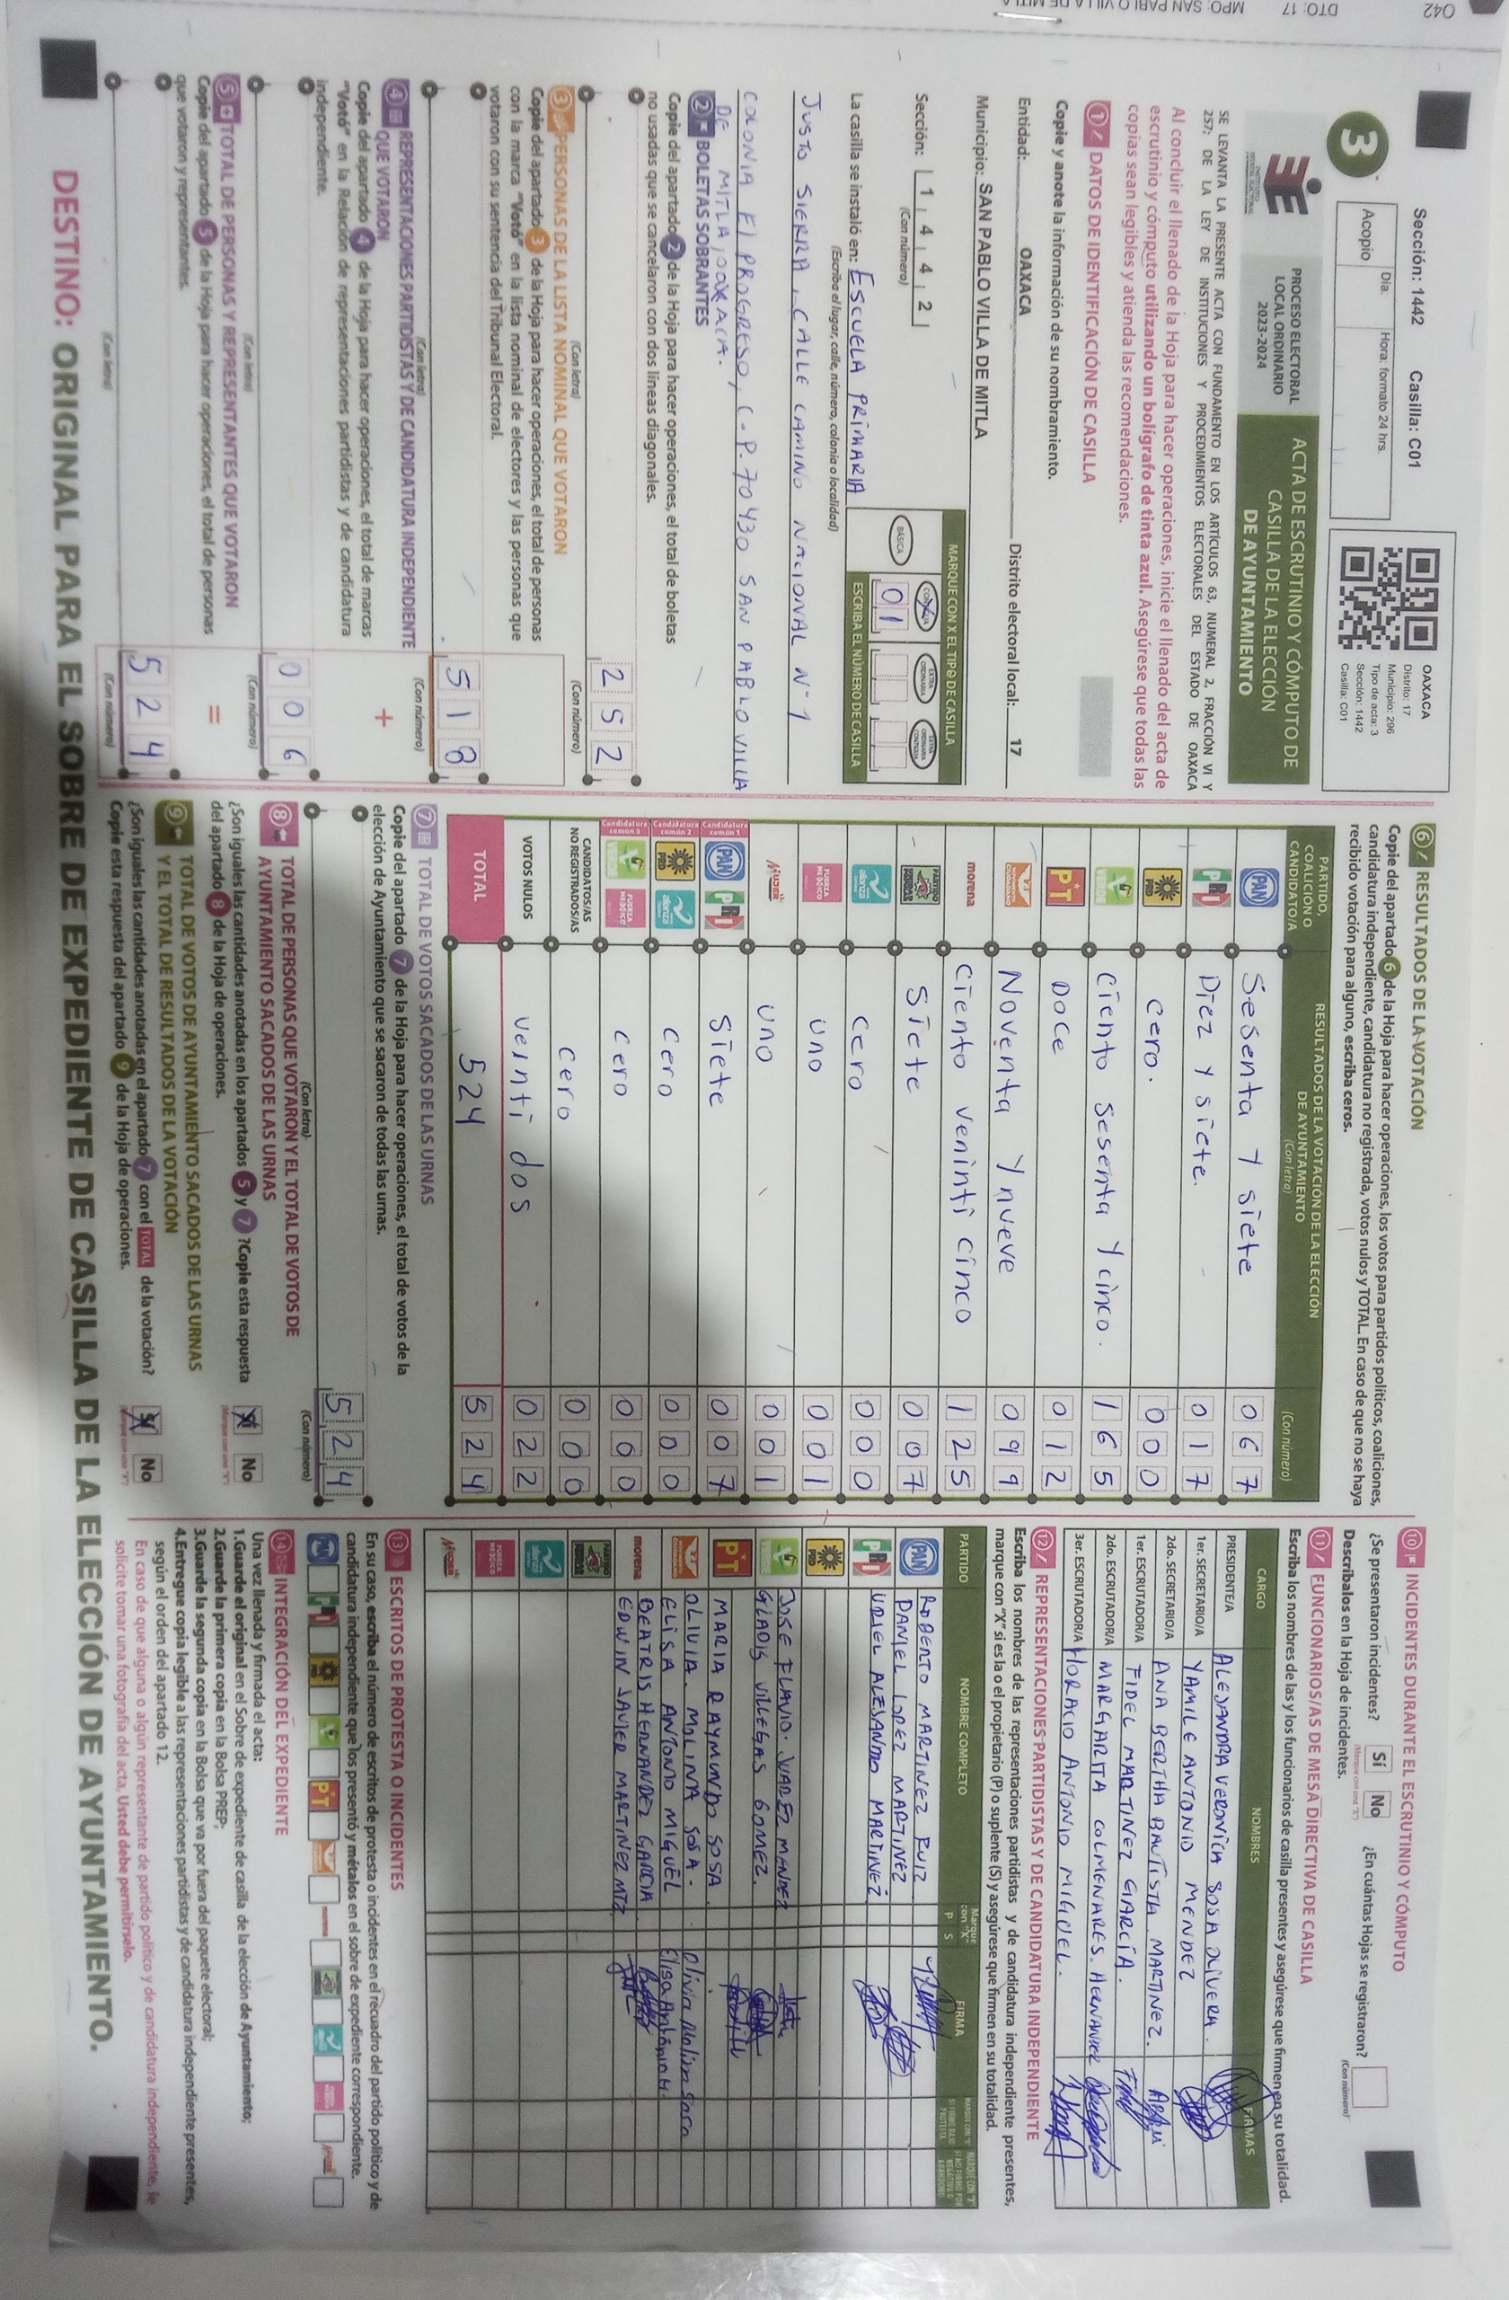 O42
DTO: 17
MPO: SAN PABLO VILLA DE MITLA
Sección: 1442 Casilla: C01
3
Día. Hora: formato 24 hrs.
Acopio
OAXACA
Distrito: 17
Municipio: 296
Tipo de acta: 3
Sección: 1442
Casilla: C01
PROCESO ELECTORAL
LOCAL ORDINARIO
2023-2024
ACTA DE ESCRUTINIO Y CÓMPUTO DE
CASILLA DE LA ELECCIÓN
DE AYUNTAMIENTO
SE LEVANTA LA PRESENTE ACTA CON FUNDAMENTO EN LOS ARTÍCULOS 63, NUMERAL 2, FRACCIÓN VI Y
257; DE LA LEY DE INSTITUCIONES Y PROCEDIMIENTOS ELECTORALES DEL ESTADO DE OAXACA
Al concluir el llenado de la Hoja para hacer operaciones, inicie el llenado del acta de
escrutinio y cómputo utilizando un bolígrafo de tinta azul. Asegúrese que todas las
copias sean legibles y atienda las recomendaciones.
1 DATOS DE IDENTIFICACIÓN DE CASILLA
Copie y anote la información de su nombramiento.
Entidad: OAXACA Distrito electoral local: 17
Municipio: SAN PABLO VILLA DE MITLA
Sección: 1 4 4 2
(Con número)
MARQUE CON X EL TIPO DE CASILLA
BÁSICA
ESCRIBA EL NÚMERO DE CASILLA
0 1
La casilla se instaló en: ESCUELA PRIMARIA
(Escriba el lugar, calle, número, colonia o localidad)
JUSTO SIERRA, CALLE CAMINO NACIONAL N-1
COLONIA El PROGRESO, C.P. 70430 SAN PABLO VILLA
DE MITLA, OAXACA.
2 BOLETAS SOBRANTES
Copie del apartado 2 de la Hoja para hacer operaciones, el total de boletas
no usadas que se cancelaron con dos líneas diagonales.
2 5 2
(Con letra) (Con número)
3 PERSONAS DE LA LISTA NOMINAL QUE VOTARON
Copie del apartado 3 de la Hoja para hacer operaciones, el total de personas
con la marca "Votó" en la lista nominal de electores y las personas que
votaron con su sentencia del Tribunal Electoral.
5 1 8
(Con letra) (Con número)
4 REPRESENTACIONES PARTIDISTAS Y DE CANDIDATURA INDEPENDIENTE
QUE VOTARON
+
Copie del apartado 4 de la Hoja para hacer operaciones, el total de marcas
"Votó" en la Relación de representaciones partidistas y de candidatura
independiente.
0 0 6
(Con letra) (Con número)
5 TOTAL DE PERSONAS Y REPRESENTANTES QUE VOTARON
=
Copie del apartado 5 de la Hoja para hacer operaciones, el total de personas
que votaron y representantes.
5 2 4
(Con letra) (Con número)
6 RESULTADOS DE LA VOTACIÓN
Copie del apartado 6 de la Hoja para hacer operaciones, los votos para partidos políticos, coaliciones,
candidatura independiente, candidatura no registrada, votos nulos y TOTAL. En caso de que no se haya
recibido votación para alguno, escriba ceros.
PARTIDO,
COALICIÓN O
CANDIDATO/A
RESULTADOS DE LA VOTACIÓN DE LA ELECCIÓN
DE AYUNTAMIENTO
(Con letra) (Con número)
PAN Sesenta y siete 0 6 7
PRI Diez y siete. 0 1 7
PRD cero. 0 0 0
VERDE Ciento sesenta y cinco. 1 6 5
PT Doce 0 1 2
Noventa y nueve 0 9 9
morena ciento veninti cinco 1 2 5
Siete 0 0 7
alianza cero 0 0 0
FUERZA MÉXICO uno 0 0 1
MUJER uno 0 0 1
Candidatura común 1 PAN PRI siete 0 0 7
Candidatura común 2 PRD alianza cero 0 0 0
Candidatura común 3 VERDE FUERZA MÉXICO cero 0 0 0
CANDIDATOS/AS
NO REGISTRADOS/AS cero 0 0 0
VOTOS NULOS veinti dos 0 2 2
TOTAL 524 5 2 4
7 TOTAL DE VOTOS SACADOS DE LAS URNAS
Copie del apartado 7 de la Hoja para hacer operaciones, el total de votos de la
elección de Ayuntamiento que se sacaron de todas las urnas.
5 2 4
(Con letra) (Con número)
8 TOTAL DE PERSONAS QUE VOTARON Y EL TOTAL DE VOTOS DE
AYUNTAMIENTO SACADOS DE LAS URNAS
¿Son iguales las cantidades anotadas en los apartados 5 y 7 ?Copie esta respuesta
del apartado 8 de la Hoja de operaciones.
Sí No
9 TOTAL DE VOTOS DE AYUNTAMIENTO SACADOS DE LAS URNAS
Y EL TOTAL DE RESULTADOS DE LA VOTACIÓN
¿Son iguales las cantidades anotadas en el apartado 7 con el TOTAL de la votación?
Copie esta respuesta del apartado 9 de la Hoja de operaciones.
Sí No
10 INCIDENTES DURANTE EL ESCRUTINIO Y CÓMPUTO
¿Se presentaron incidentes? Sí No ¿En cuántas Hojas se registraron?
(Marque con una "X") (Con número)
Descríbalos en la Hoja de incidentes.
11 FUNCIONARIOS/AS DE MESA DIRECTIVA DE CASILLA
Escriba los nombres de las y los funcionarios de casilla presentes y asegúrese que firmen en su totalidad.
CARGO NOMBRES FIRMAS
PRESIDENTE/A ALEJANDRA VERONICA SOSA OLIVERA.
1er. SECRETARIO/A YAMILE ANTONIO MENDEZ
2do. SECRETARIO/A ANA BERTHA BAUTISTA MARTINEZ.
1er. ESCRUTADOR/A FIDEL MARTINEZ GARCÍA.
2do. ESCRUTADOR/A MARGARITA COLMENARES. HERNANDEZ
3er. ESCRUTADOR/A HORACIO ANTONIO MIGUEL.
12 REPRESENTACIONES PARTIDISTAS Y DE CANDIDATURA INDEPENDIENTE
Escriba los nombres de las representaciones partidistas y de candidatura independiente presentes,
marque con "X" si es la o el propietario (P) o suplente (S) y asegúrese que firmen en su totalidad.
PARTIDO NOMBRE COMPLETO Marque con "X" P S FIRMA
PAN ROBERTO MARTINEZ RUIZ
DANIEL LOPEZ MARTINEZ
PRI URIEL ALEJANDRO MARTINEZ
PRD
VERDE JOSE FLAVIO. JUAREZ MENDEZ
GLADIS VILLEGAS GOMEZ.
PT MARIA RAYMUNDO SOSA
OLIVIA. MOLINA SOSA. Olivia Molina Sosa
ELISA ANTONIO MIGUEL Elisa Antonio M.
morena BEATRIS HERNANDEZ GARCIA
EDWIN JAVIER MARTINEZ MTZ
alianza
FUERZA MÉXICO
MUJER
13 ESCRITOS DE PROTESTA O INCIDENTES
En su caso, escriba el número de escritos de protesta o incidentes en el recuadro del partido político y de
candidatura independiente que los presentó y métalos en el sobre de expediente correspondiente.
14 INTEGRACIÓN DEL EXPEDIENTE
Una vez llenada y firmada el acta:
1.Guarde el original en el Sobre de expediente de casilla de la elección de Ayuntamiento;
2.Guarde la primera copia en la Bolsa PREP;
3.Guarde la segunda copia en la Bolsa que va por fuera del paquete electoral;
4.Entregue copia legible a las representaciones partidistas y de candidatura independiente presentes,
según el orden del apartado 12.
En caso de que alguna o algún representante de partido político y de candidatura independiente, le
solicite tomar una fotografía del acta, Usted debe permitírselo.
DESTINO: ORIGINAL PARA EL SOBRE DE EXPEDIENTE DE CASILLA DE LA ELECCIÓN DE AYUNTAMIENTO.